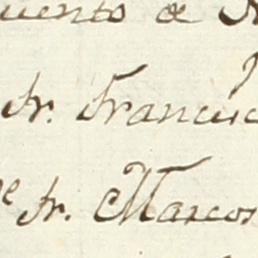 uento de
Fr. Francisc
Fr. Marcos